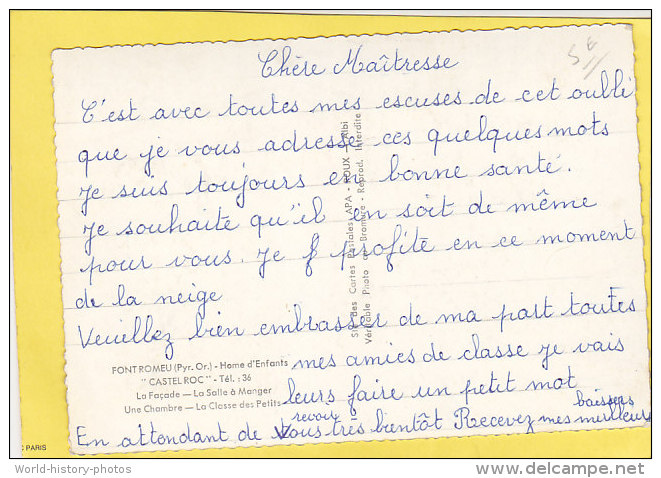 5 €
Chère Maîtresse
C'est avec toutes mes escuses de cet oublie
que je vous adresse ces quelques mots
Je suis toujours en bonne santé.
Je souhaite qu'il en soit de même
pour vous. Je profite en ce moment
de la neige
Veuillez bien embrasser de ma part toutes
mes amies de classe je vais
leurs faire un petit mot
En attendant de vous revoir très bientôt Recevez mes meilleurs baisers
FONT ROMEU (Pyr. Or.) - Home d'Enfants
"CASTEL ROC" - Tél. : 36
La Façade — La Salle à Manger
Une Chambre — La Classe des Petits
Sté des Cartes Postales APA - POUX - Albi
Véritable Photo au Bromure - Reprod. Interdite
C PARIS
World-history-photos
delcampe.net